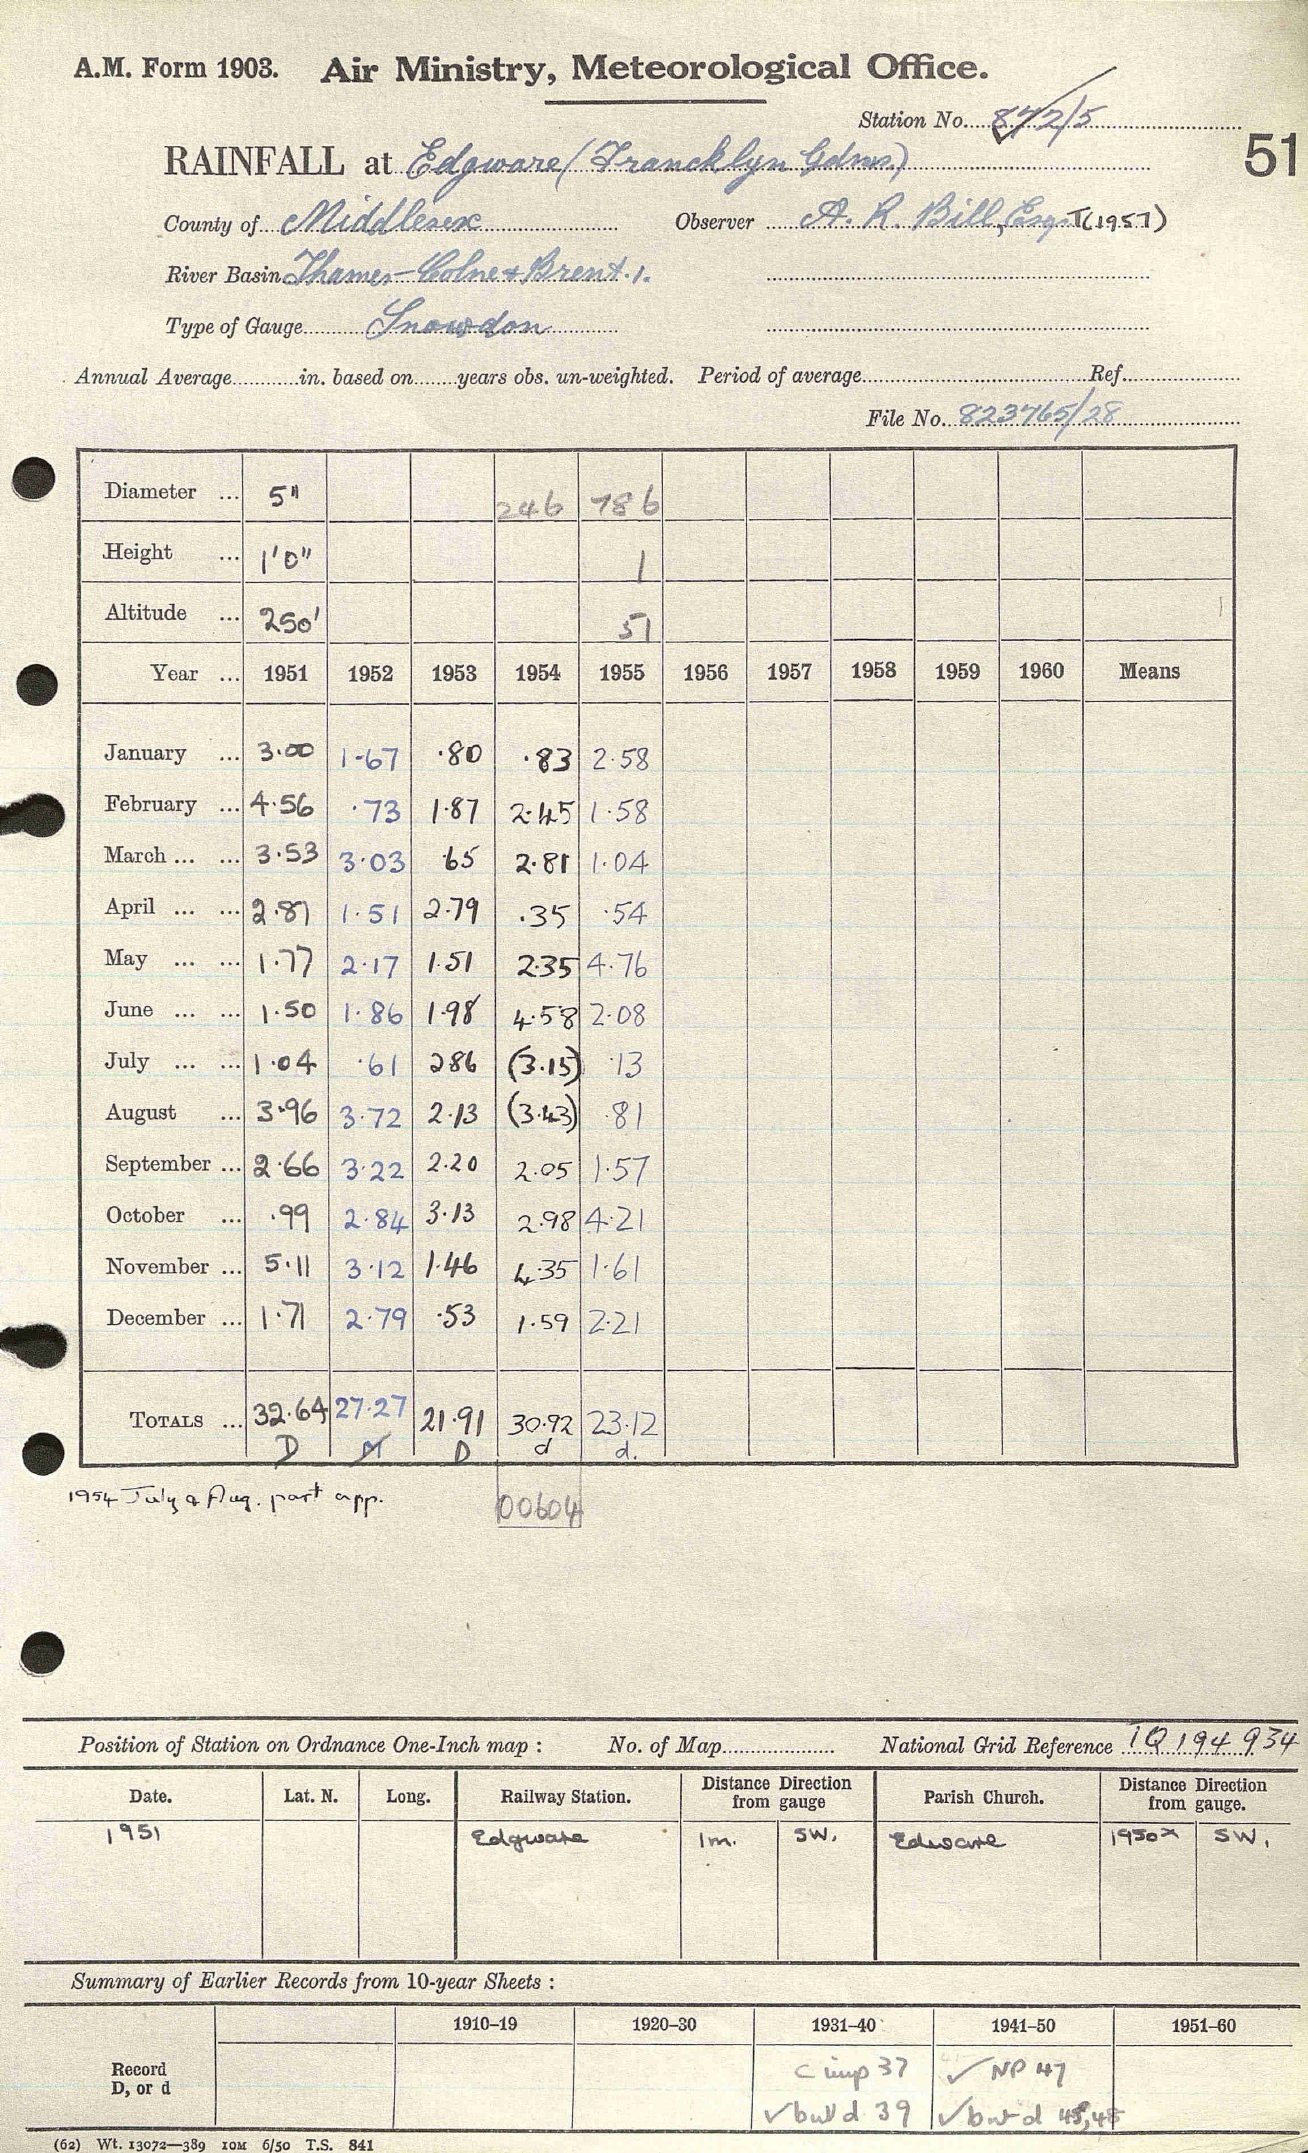 A.M. Form 1903. Air Ministry, Meteorological Office.
Station No. 872/5
51
RAINFALL at Edgware (Francklyn Gdns.)
County of Middlesex Observer A. R. Bill, Esq. T(1957)
River Basin Thames - Colne & Brent. 1.
Type of Gauge Snowdon
Annual Average in. based on years obs. un-weighted. Period of average Ref.
File No. 823765/28
Diameter ... 5" 246 786
Height ... 1'0" 1
Altitude ... 250' 51
Year ... 1951 1952 1953 1954 1955 1956 1957 1958 1959 1960 Means
January ... 3.00 1.67 .80 .83 2.58
February ... 4.56 .73 1.87 2.45 1.58
March ... ... 3.53 3.03 .65 2.81 1.04
April ... ... 2.81 1.51 2.79 .35 .54
May ... ... 1.77 2.17 1.51 2.35 4.76
June ... ... 1.50 1.86 1.98 4.58 2.08
July ... ... 1.04 .61 2.86 (3.15) .13
August ... 3.96 3.72 2.13 (3.43) .81
September ... 2.66 3.22 2.20 2.05 1.57
October ... .99 2.84 3.13 2.98 4.21
November ... 5.11 3.12 1.46 4.35 1.61
December ... 1.71 2.79 .53 1.59 2.21
TOTALS ... 32.64 27.27 21.91 30.92 23.12
D D d d.
1954 July & Aug. part app.
00604
Position of Station on Ordnance One-Inch map : No. of Map National Grid Reference TQ 194 934
Date. Lat. N. Long. Railway Station. Distance Direction from gauge Parish Church. Distance Direction from gauge.
1951 Edgware 1m. SW. Edware 1950x SW.
Summary of Earlier Records from 10-year Sheets :
1910–19 1920–30 1931–40 1941–50 1951–60
Record D, or d
c imp 37 ✓ NP 47
✓ but d 39 ✓ but d 45,48
(62) Wt. 13072—389 10M 6/50 T.S. 841